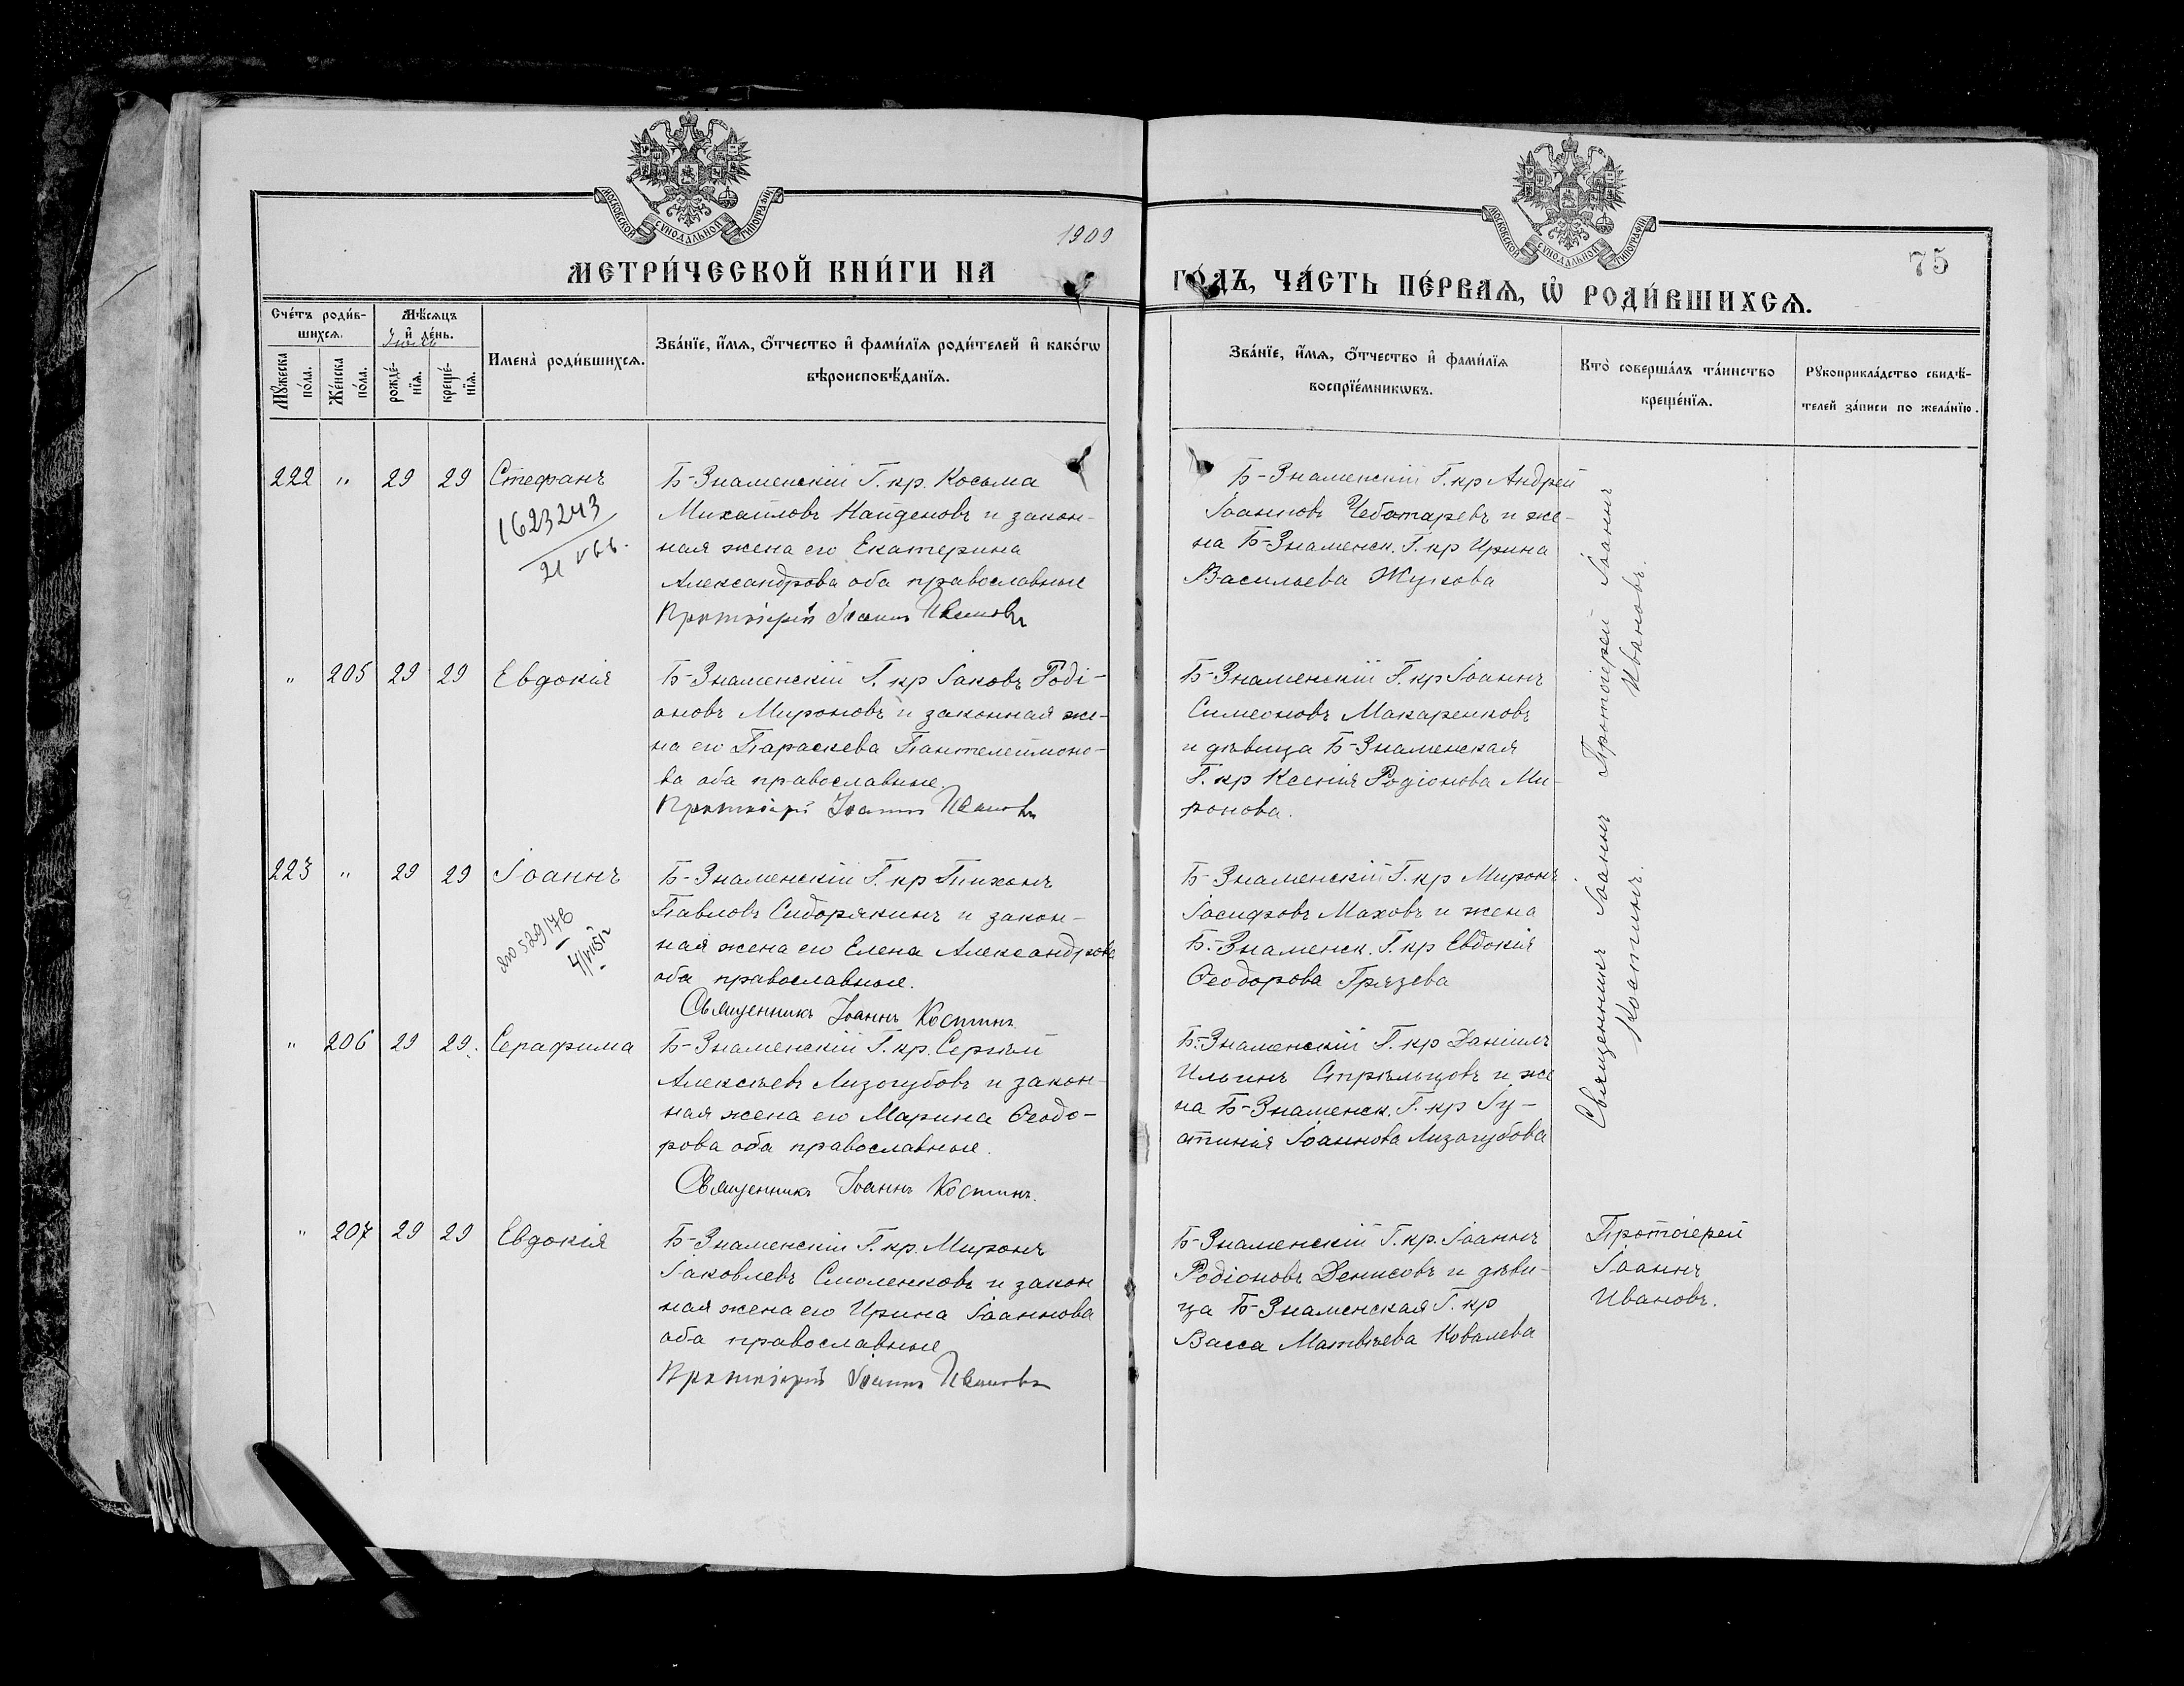 МОСКОВСКОЙ СѴНОДАЛЬНОЙ ТИПОГРАФІИ
МОСКОВСКОЙ СѴНОДАЛЬНОЙ ТИПОГРАФІИ
1909
75
МЕТРИ́ЧЕСКОЙ КНИ́ГИ НА
ГО́ДЪ, ЧА́СТЬ ПЕ́РВАѦ, Ѡ РОДИ́ВШИХСѦ.
Сче́тъ роди́в-
шихсѧ.
Мꙋ́жеска по́ла.
Же́нска по́ла.
Мѣ́сѧцъ и҆ де́нь.
рожде́-
нїѧ.
креще́-
нїѧ.
Имена̀ роди́вшихсѧ.
Зва́нїе, и҆́мѧ, ѻ҆́тчество и҆ фами́лїѧ роди́телей и҆ како́гѡ
вѣроисповѣ́данїѧ.
Зва́нїе, и҆́мѧ, ѻ҆́тчество и҆ фами́лїѧ
воспрїе́мникѡвъ.
Кто̀ соверша́лъ та́инство
креще́нїѧ.
Рꙋкоприкла́дство свидѣ́-
телей за́писи по жела́нїю.
222 " 29 29 Стефанъ
1623243
Б-Знаменскій Г. кр. Косьма
Михайловъ Найденовъ и закон-
ная жена его Екатерина
Александрова оба православные
Протоіерей Іоаннъ Ивановъ
Б-Знаменскій Г. кр Андрей
Іоанновъ Чеботаревъ и же-
на Б-Знаменск. Г. кр Ирина
Васильева Жукова
" 205 29 29 Евдокія
Б-Знаменскій Г. кр Іаковъ Роді-
оновъ Мироновъ и законная же-
на его Параскева Пантелеимоно-
ва оба православные.
Протоіерей Іоаннъ Ивановъ
Б-Знаменскій Г. кр Іоаннъ
Симеоновъ Макаренковъ
и дѣвица Б-Знаменская
Г. кр Ксенія Родіонова Ми-
ронова.
223 " 29 29 Іоаннъ
Б-Знаменскій Г. кр Тихонъ
Павловъ Сидорякинъ и закон-
ная жена его Елена Александрова
оба православные.
Священникъ Іоаннъ Костинъ
Б-Знаменскій Г. кр Миронъ
Іосифовъ Маховъ и жена
Б.-Знаменск. Г. кр Евдокія
Ѳеодорова Грязева
" 206 29 29. Серафима
Б-Знаменскій Г. кр. Сергѣй
Алексѣевъ Лизогубовъ и закон-
ная жена его Марина Ѳеодо-
рова оба православные.
Священникъ Іоаннъ Костинъ.
Б.-Знаменскій Г. кр Даніилъ
Ильинъ Стрѣльцовъ и же
на Б-Знаменск. Г. кр Іу-
стинія Іоаннова Лизогубова
Священникъ Іоаннъ Костинъ.
Протоіерей Іоаннъ Ивановъ.
" 207 29 29 Евдокія
Б-Знаменскій Г. кр. Миронъ
Іаковлевъ Смоленковъ и закон
ная жена его Ирина Іоаннова
оба православные
Протоіерей Іоаннъ Ивановъ
Б-Знаменскій Г. кр. Іоаннъ
Родіоновъ Денисовъ и дѣви-
ца Б-Знаменская Г. кр
Васса Матвѣева Ковалева
Протоіерей
Іоаннъ
Ивановъ.